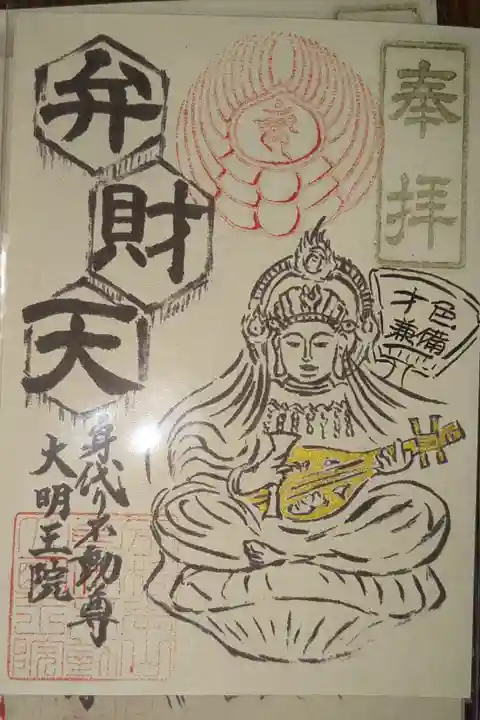 奉拝
才色兼備
弁財天
身代り不動尊
大明王院